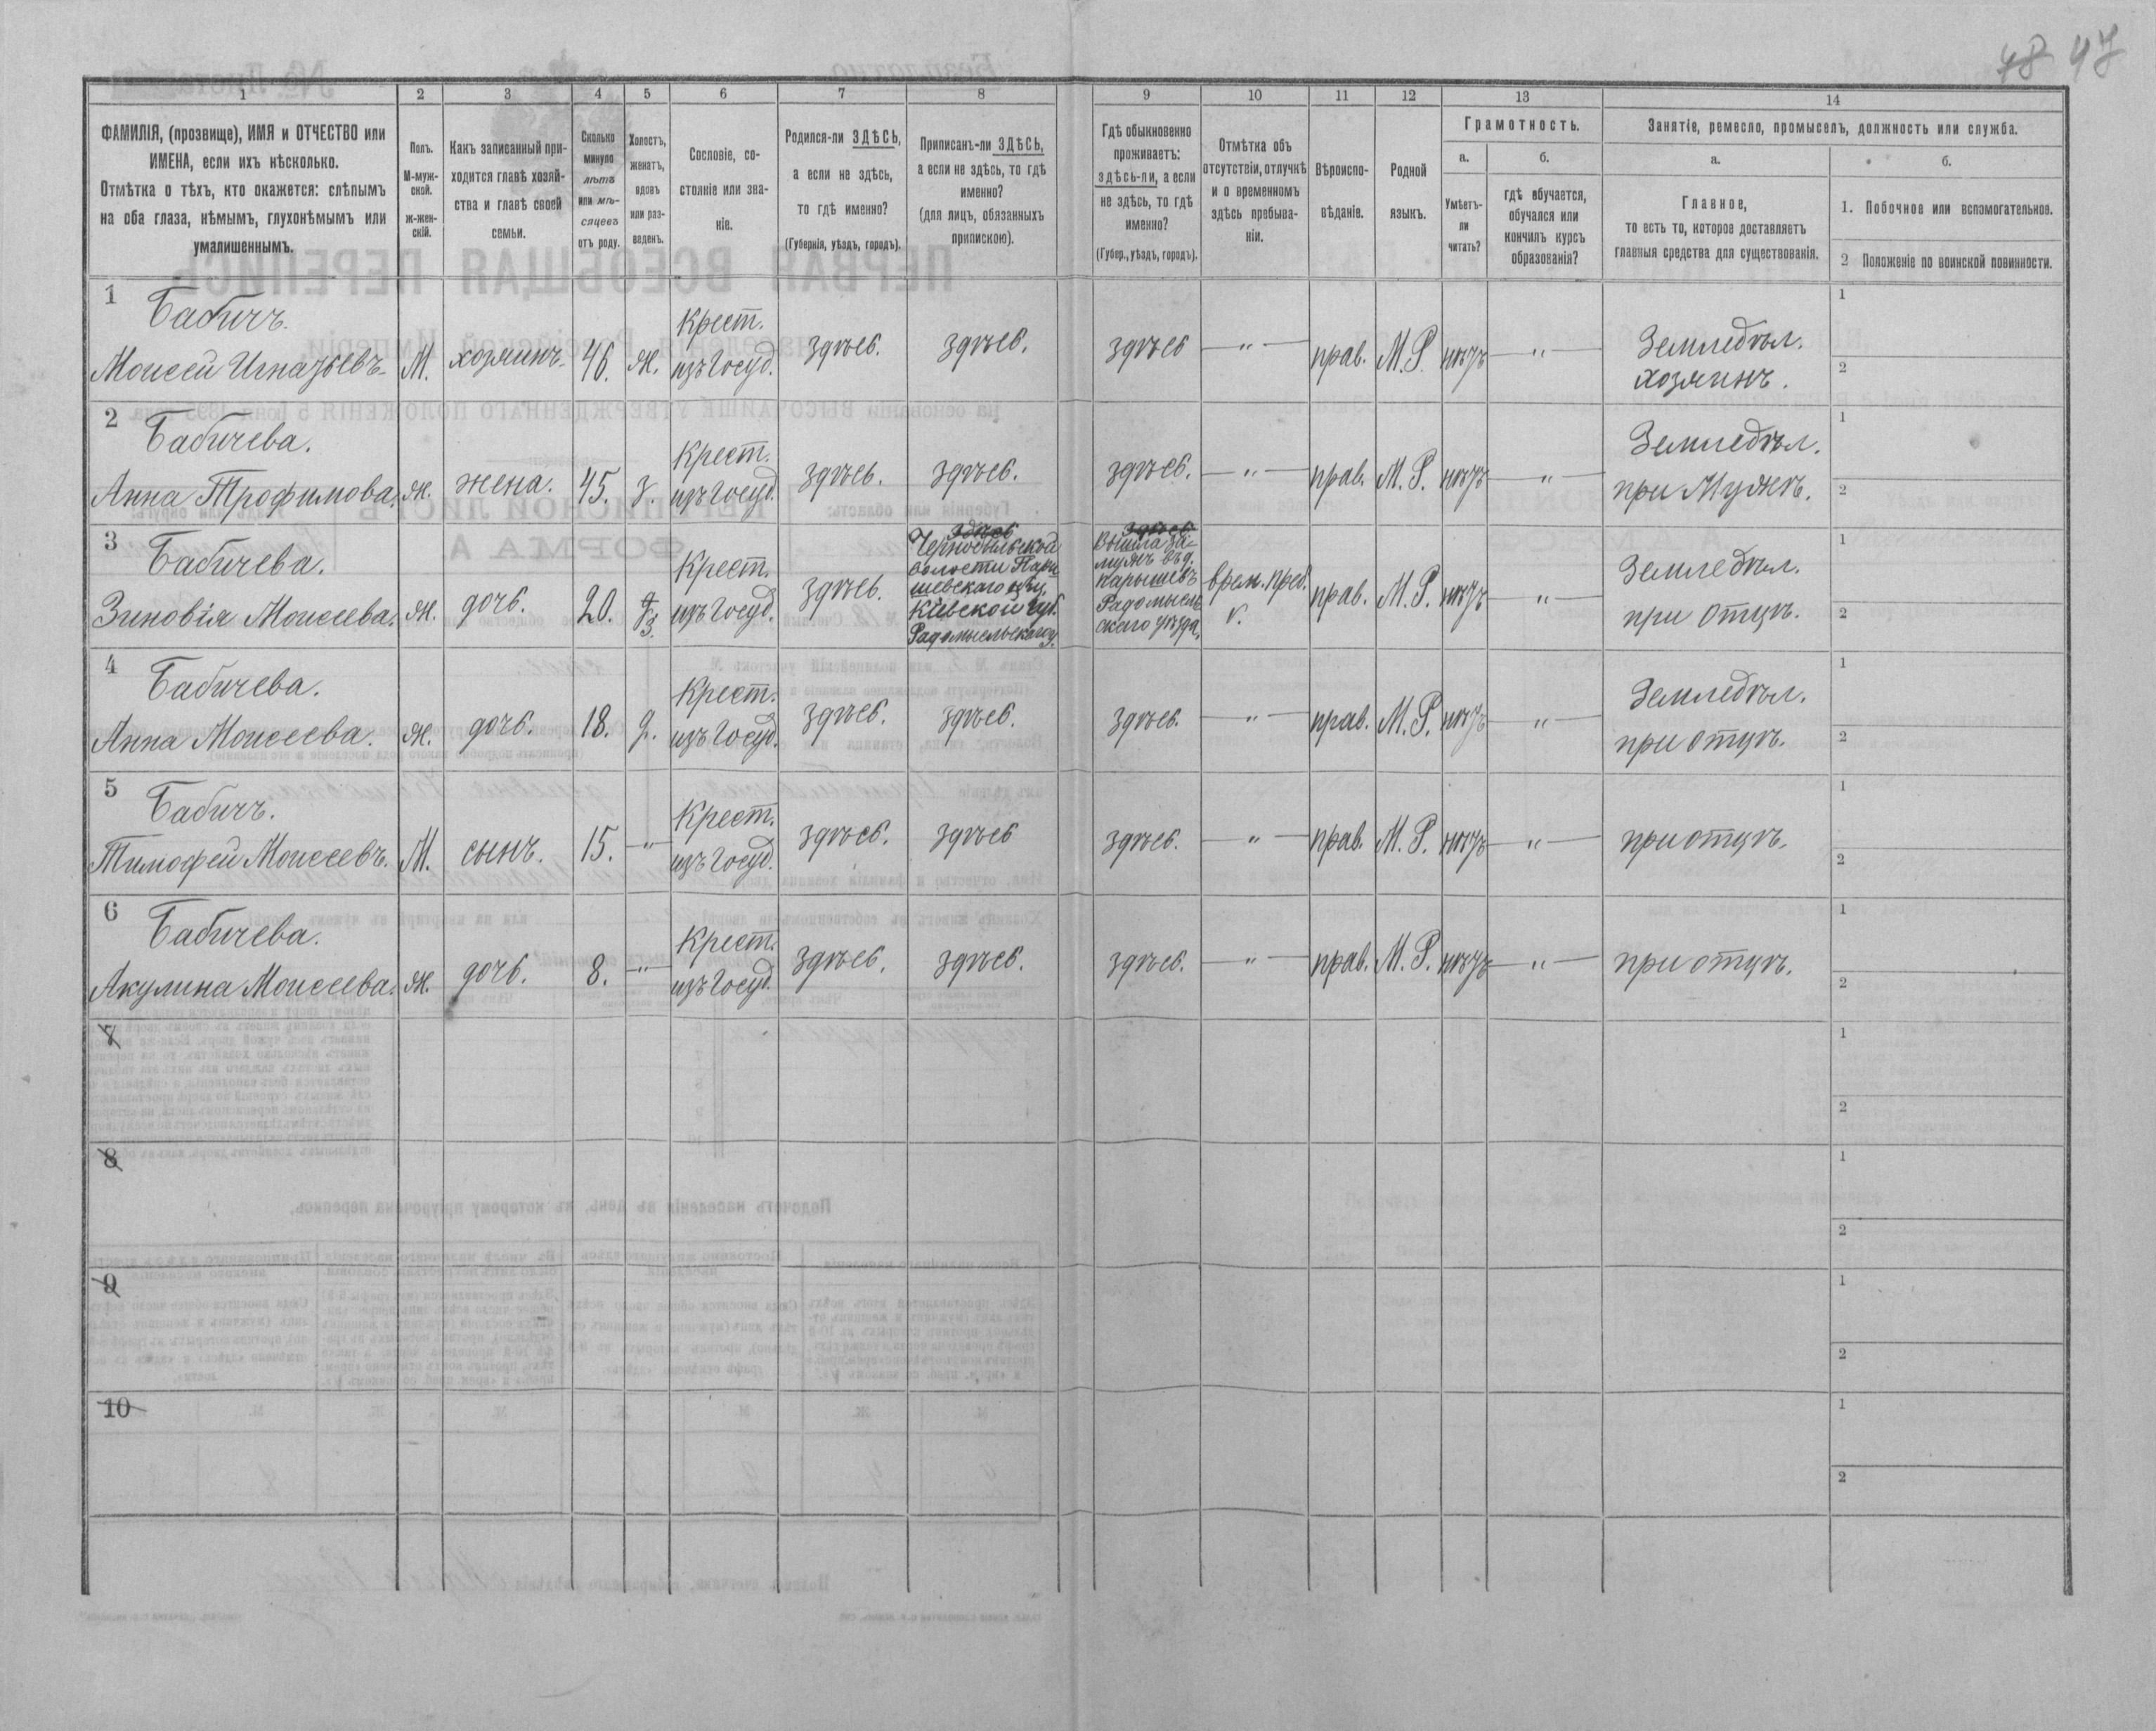 48 47
1 2 3 4 5 6 7 8 9 10 11 12 13 14
ФАМИЛІЯ, (прозвище), ИМЯ и ОТЧЕСТВО или
ИМЕНА, если ихъ нѣсколько.
Отмѣтка о тѣхъ, кто окажется: слѣпымъ
на оба глаза, нѣмымъ, глухонѣмымъ или
умалишеннымъ.
Полъ.
М-муж-
ской.
ж-жен-
скій.
Какъ записанный при-
ходится главѣ хозяй-
ства и главѣ своей
семьи.
Сколько
минуло
лѣтъ
или мѣ-
сяцевъ
отъ роду.
Холостъ,
женатъ,
вдовъ
или раз-
веденъ.
Сословіе, со-
стояніе или зва-
ніе.
Родился-ли ЗДѢСЬ,
а если не здѣсь,
то гдѣ именно?
(Губернія, уѣздъ, городъ).
Приписанъ-ли ЗДѢСЬ,
а если не здѣсь, то гдѣ
именно?
(для лицъ, обязанныхъ
припискою).
Гдѣ обыкновенно
проживаетъ:
здѣсь-ли, а если
не здѣсь, то гдѣ
именно?
(Губер., уѣздъ, городъ).
Отмѣтка объ
отсутствіи, отлучкѣ
и о временномъ
здѣсь пребыва-
ніи.
Вѣроиспо-
вѣданіе.
Родной
языкъ.
Грамотность.
а.
Умѣетъ-
ли
читать?
б.
гдѣ обучается,
обучался или
кончилъ курсъ
образованія?
Занятіе, ремесло, промыселъ, должность или служба.
а.
Главное,
то есть то, которое доставляетъ
главныя средства для существованія.
б.
1. Побочное или вспомогательное.
2 Положеніе по воинской повинности.
1 Бабичъ.
Моисей Игнатьевъ. М. хозяинъ. 46. ж. Крест. изъ Госуд. здѣсь. здѣсь. здѣсь — " — прав. М.Р. нѣтъ — " — Земледѣл. хозяинъ. 1 2
2 Бабичева.
Анна Трофимова. ж. жена. 45. з. Крест. изъ Госуд. здѣсь. здѣсь. здѣсь. — " — прав. М.Р. нѣтъ — " — Земледѣл. при Мужѣ. 1 2
3 Бабичева.
Зиновія Моисеева. ж. дочь. 20. з. Крест. изъ Госуд. здѣсь.
здѣсь
Чернобыльской
волости
Кіевской губ.
Радомысльскаго у.
здѣсь
Вышла за-
мужъ въ д.
Радомысль-
скаго уѣзда.
врем. преб.
V.
прав. М.Р. нѣтъ — " — Земледѣл. при отцѣ. 1 2
4 Бабичева.
Анна Моисеева. ж. дочь. 18. д. Крест. изъ Госуд. здѣсь. здѣсь. здѣсь. — " — прав. М.Р. нѣтъ — " — Земледѣл. при отцѣ. 1 2
5 Бабичъ.
Тимофей Моисеевъ. М. сынъ. 15. — " — Крест. изъ Госуд. здѣсь. здѣсь здѣсь. — " — прав. М.Р. нѣтъ — " — при отцѣ. 1 2
6 Бабичева.
Акулина Моисеева. ж. дочь. 8. — " — Крест. изъ Госуд. здѣсь. здѣсь. здѣсь. — " — прав. М.Р. нѣтъ — " — при отцѣ. 1 2
7 1 2
8 1 2
9 1 2
10 1 2